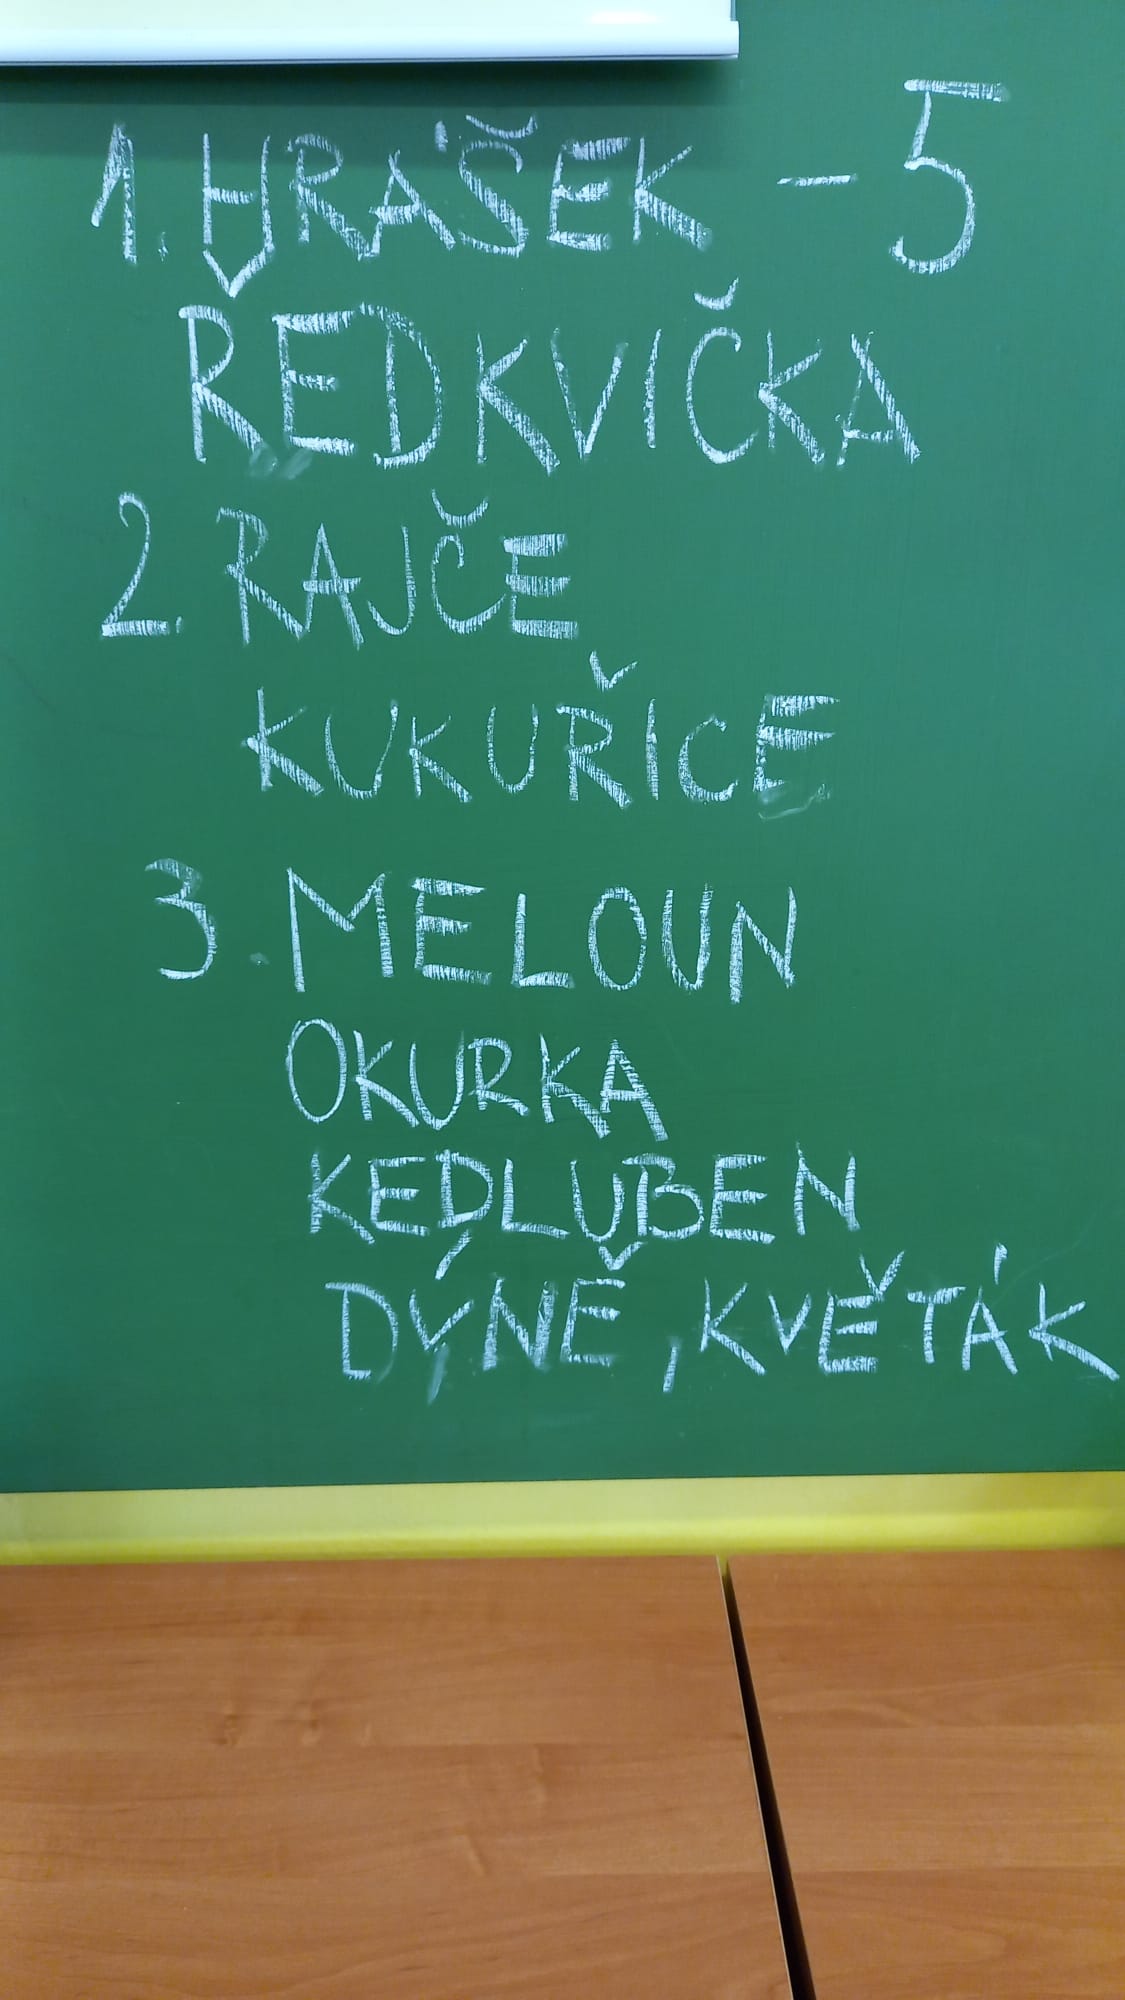 1. HRÁŠEK – 5
ŘEDKVIČKA
2. RAJČE
KUKUŘICE
3. MELOUN
OKURKA
KEDLUBEN
DÝNĚ, KVĚTÁK